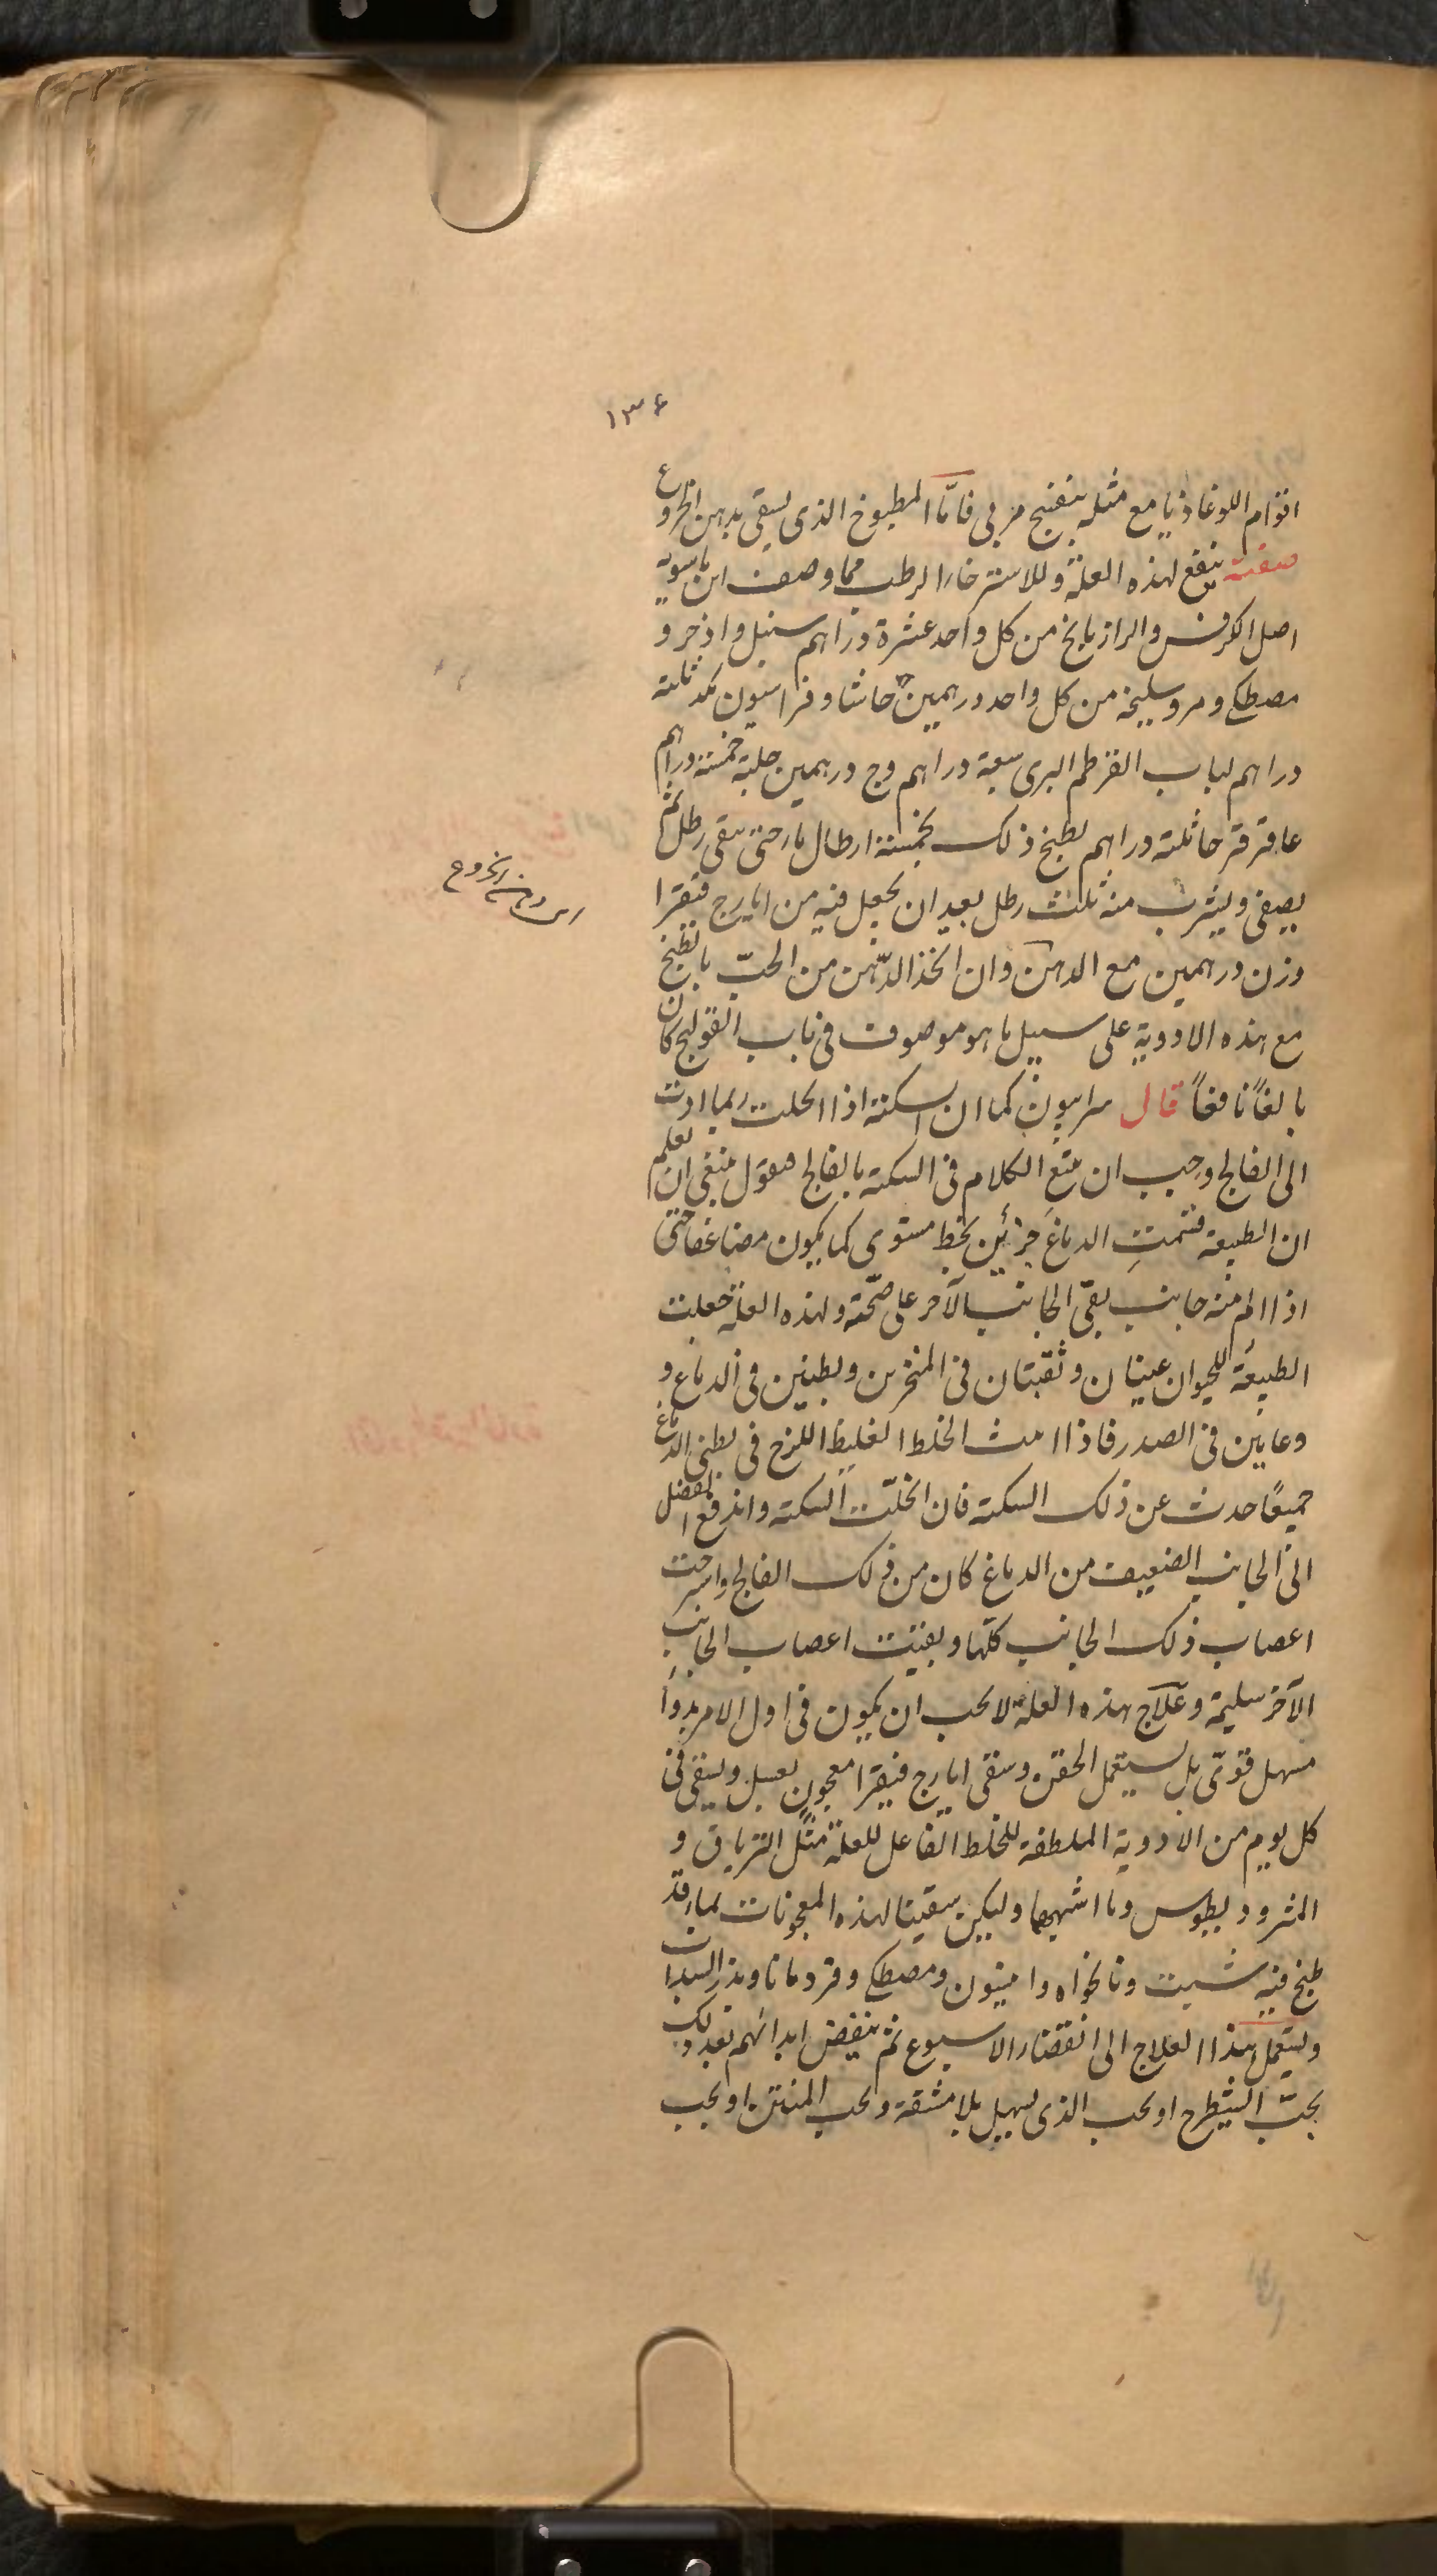 ١٣٤
اقوام اللوغاذيا مع مثله بنفسج مربى فاما المطبوخ الذى يسقى بدهن الخروع
صفته ينفع لهذه العلة وللاسترخاء الرطب مما وصف ابن ماسويه
اصل الكرفس والرازيانج من كل واحد عشرة دراهم سنبل واذخر و
مصطكى ومر وسليخة من كل واحد درهمين حاشا وفراسيون مكد ثلثة
دراهم لباب القرطم البرى سبعة دراهم وج درهمين حلبة خمسة دراهم
عاقرقرحا ثلثة دراهم يطبخ ذلك بخمسة ارطال ماء حتى يبقى رطل ثم
يصفى ويشرب منه ثلث رطل بعد ان يجعل فيه من ايارج فيقرا
وزن درهمين مع الدهن وان اتخذ الدّهن من الحبّ بالطبخ
مع هذه الادوية على سبيل ما هو موصوف فى باب القولنج كان
بالغاً نافعاً قال سرابيون كما ان السكتة اذا انحلت ربما ادت
الى الفالج وجب ان يتبع الكلام فى السكتة بالفالج فنقول ينبغى ان تعلم
ان الطبيعة قسمتِ الدماغَ جزئين بخط مستوى كما يكون مضاعفا حتى
اذا الم منه جانب بقى الجانب الآخر على صحّته ولهذه العلة جعلت
الطبيعة للحيوان عينان وثقبتان فى المنخرين وبطنين فى الدماغ و
وعايين فى الصدر فاذا امث الخلط الغليظ اللزج فى بطنى الدماغ
جميعًا حدث عن ذلك السكتة فان انحلّت السكتة واندفع الفضل
الى الجانب الضعيف من الدماغ كان من ذلك الفالج واسترخت
اعصاب ذلك الجانب كلّها وبقيت اعصاب الجانب
الآخر سليمة وعلاج هذه العلة لا يجب ان يكون فى اول الامر بدواء
مسهل قوىّ بل يستعمل الحقن وسقى ايارج فيقرا معجون بعسل ويسقى فى
كل يوم من الادوية الملطفة للخلط الفاعل للعلة مثل الترياق و
المثروديطوس وما اشبهها وليكن سقينا لهذه المعجونات بماء قد
طبخ فيه شبت ونانخواه وانيسون ومصطكى وقردمانا وبذر السداب
ويستعمل هذا العلاج الى انقضاء الاسبوع ثم ينفض ابدانهم بعد ذلك
بحبّ الشيطرج او بحب الذى يسهل بلا مشقة وبحب المنتن او بحب
دهن الخروع